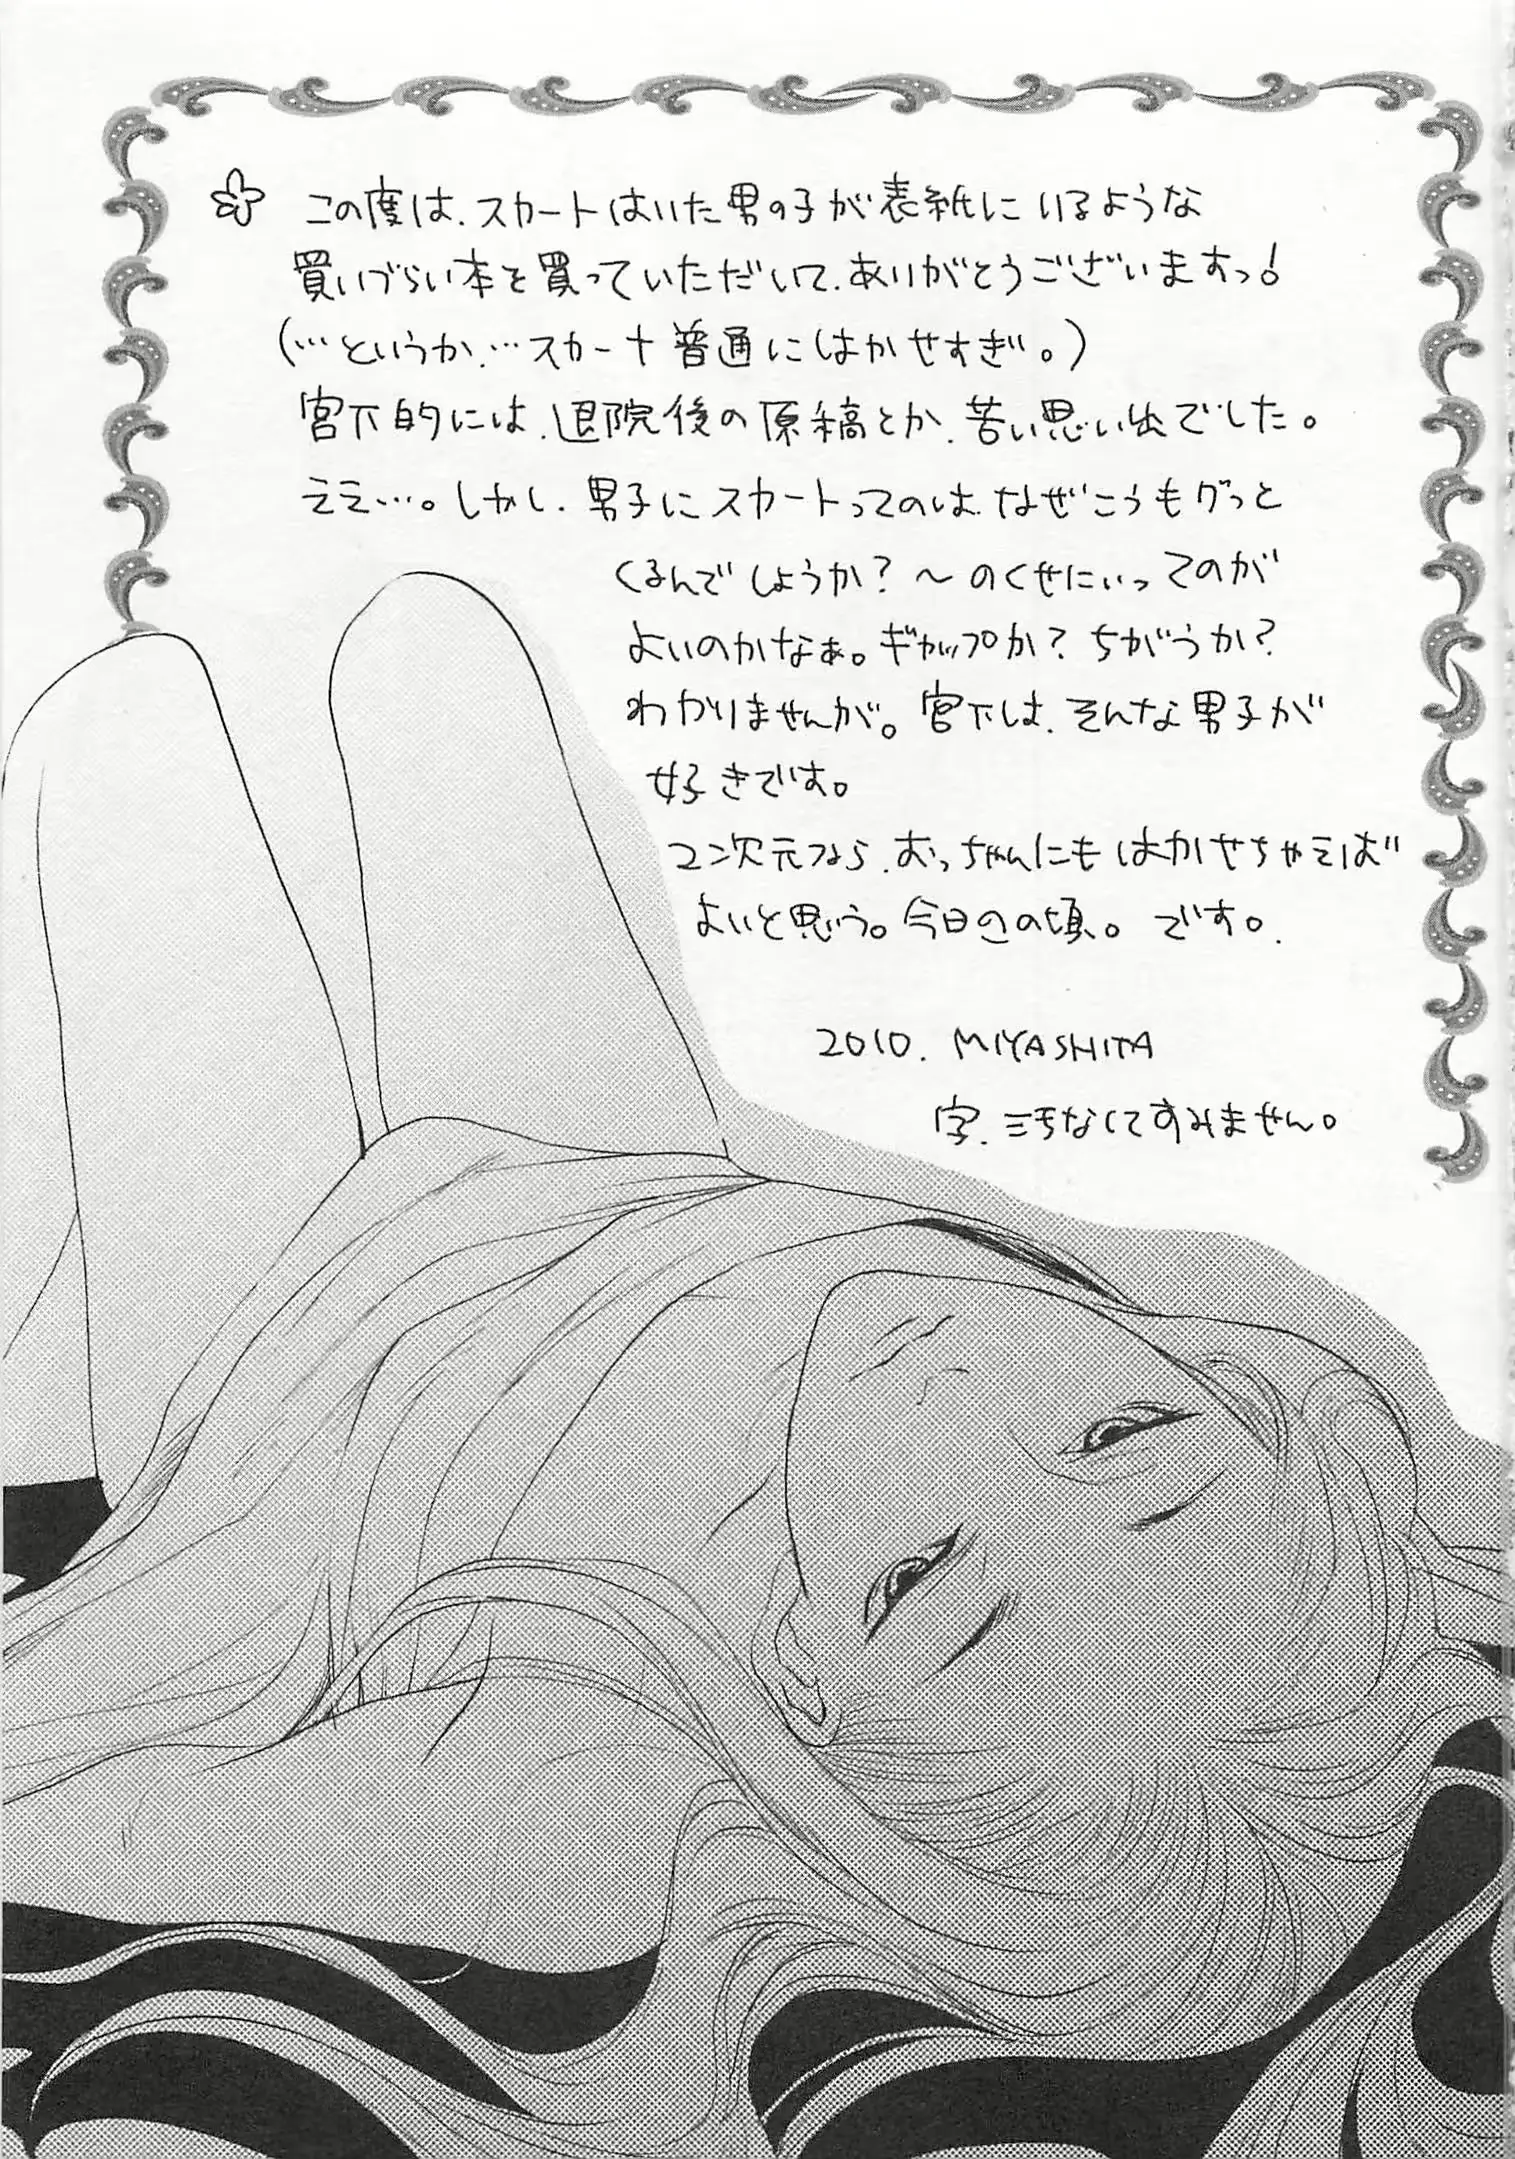 この度は、スカートはいた男の子が表紙にいるような
買いづらい本を買っていただいて、ありがとうございますっ!
(…というか、…スカート普通にはかせすぎ。)
宮下的には、退院後の原稿とか、苦い思い出でした。
ええ…。しかし、男子にスカートってのは、なぜこうもグっと
くるんでしょうか?〜のくせにぃってのが
よいのかなぁ。ギャップか?ちがうか?
わかりませんが。宮下は、そんな男子が
好きです。
2次元なら、おっちゃんにもはかせちゃえば
よいと思う。今日この頃。です。
2010. MIYASHITA
字、汚なくてすみません。